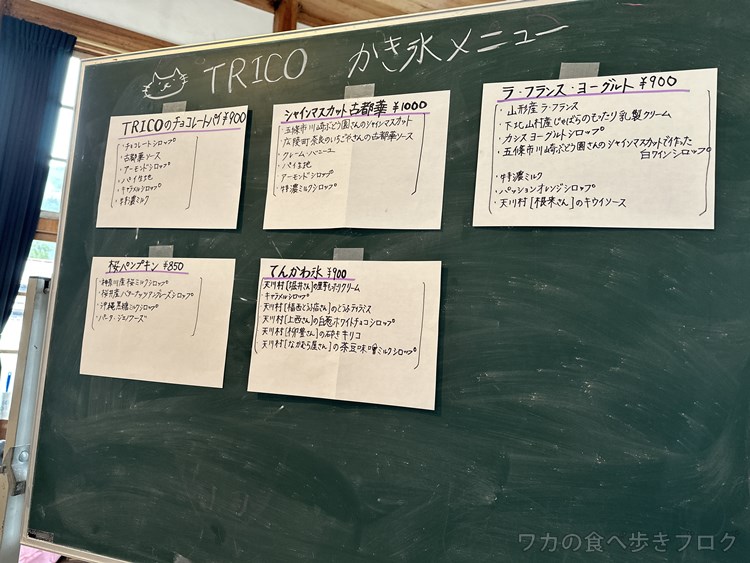 TRICO かき氷メニュー
TRICOのチョコレートパイ ¥900
・チョコレートシロップ
・古都華ソース
・アーモンドシロップ
・パイ生地
・キャラメルシロップ
・特濃ミルク
シャインマスカット古都華 ¥1000
・五條市川崎ぶどう園さんのシャインマスカット
・広陵町奈良のいちごやさんの古都華ソース
・クレームハニーユ
・パイ生地
アーモンドシロップ
・特濃ミルクシロップ
ラ・フランス・ヨーグルト ¥900
・山形産ラ・フランス
・下北山村産じゃばらのもったり乳製クリーム
・カシスヨーグルトシロップ
・五條市川崎ぶどう園さんのシャインマスカットで作った
白ワインシロップ
・特濃ミルク
・パッションオレンジシロップ
・天川村[根来さん]のキウイソース
桜パンプキン ¥850
・神奈川産桜ミルクシロップ
・桜井産バターナッツアングレーズシロップ
・沖縄黒糖ミルクシロップ
てんかわ氷 ¥900
キャラメルシロップ
天川村[福西とうふ店さん]のとうふティラミス
天川村[上西さん]の白葱ホワイトチョコシロップ
天川村[柳豊さん]の砕きキリコ
天川村[なかむら屋さん]の茶豆味噌ミルクシロップ
ワカの食べ歩きブログ